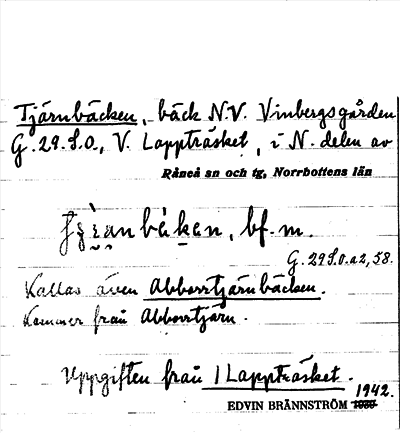 Tjärnbäcken, bäck N.V. Vinbergsgården
G.29.S.O., V. Lappträsket, i N. delen av
Råneå sn och tg, Norrbottens län
bf. m.
G.29S.O.a2,58.
Kallas även Abborrtjärnbäcken.
Kommer från Abborrtjärn.
Uppgiften från 1 Lappträsket.
1942.
EDVIN BRÄNNSTRÖM